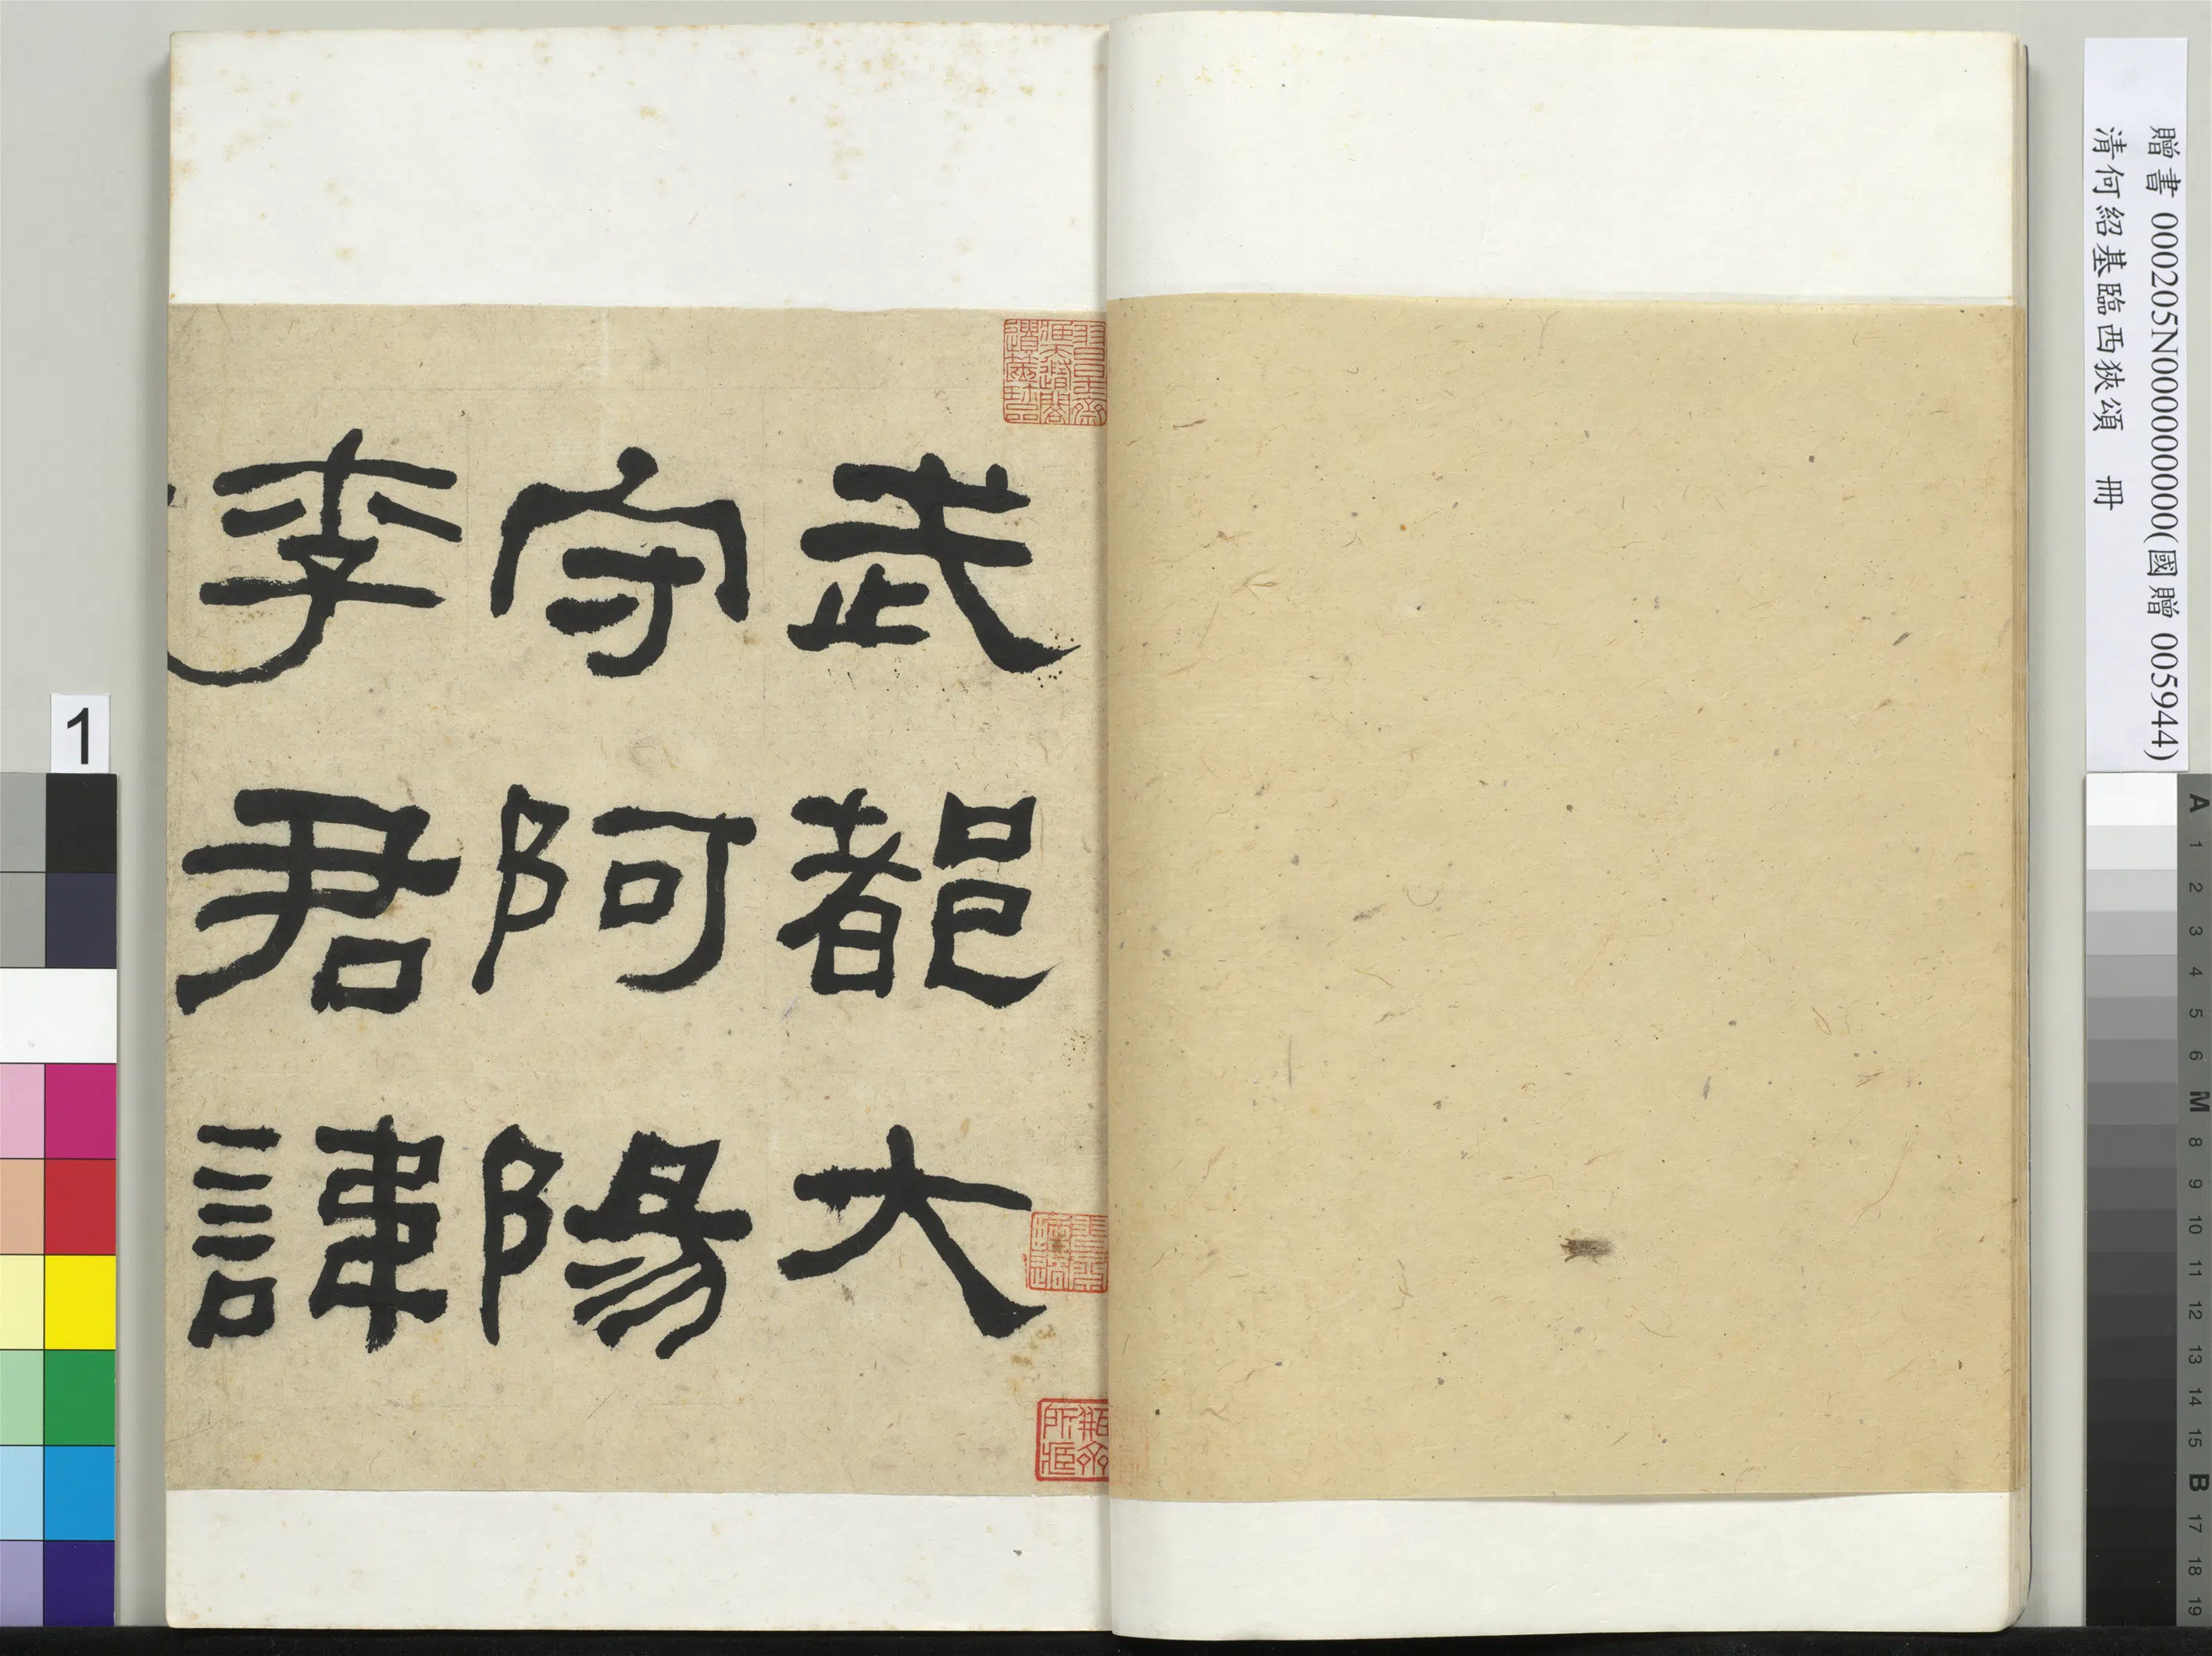 贈書 000205N000000000(國贈 005944)
清何紹基臨西狹頌 冊
武都大
守阿陽
李君諱
1
A
1
2
3
4
5
6
M
8
9
10
11
12
13
14
15
B
17
18
19